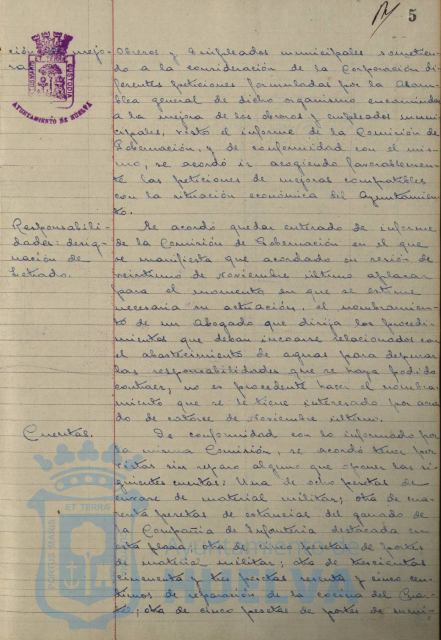 5
ción mejo- Obreros y Empleados municipales sometien-
ra do a la consideración de la Corporación di-
ferentes peticiones formuladas por la Asam-
blea general de dicho organismo encaminada
AYUNTAMIENTO DE HUELVA
a la mejora de los obreros y empleados muni-
cipales, visto el informe de la Comisión de
Gobernación, y de conformidad con el mis-
mo, se acordó ir acogiendo favorablemen-
te las peticiones de mejoras compatibles
con la situación económica del Ayuntamien-
to.
Responsabili- Se acordó quedar enterado de informe
dades: desig- de la Comisión de Gobernación en el que
nación de se manifiesta que acordado en sesión de
Letrado. veintiuno de Noviembre último aplazar
para el momento en que se estime
necesaria su actuación, el nombramien-
to de un Abogado que dirija los procedi-
mientos que deban incoarse relacionados con
el abastecimiento de aguas para depurar
las responsabilidades que se haya podido
contraer, no es procedente hacer el nombra-
miento que se tiene interesado por acuer-
do de catorce de Noviembre último.
Cuentas. De conformidad con lo informado por
la misma Comisión, se acordó tener por
vistas sin reparo alguno que oponer las si-
guientes cuentas: Una de ocho pesetas de
envase de material militar; otra de cua-
renta pesetas de estancias del ganado de
la Compañía de Infantería destacada en
esta plaza; otra de cinco pesetas de portes
de material militar; otra de trescientas
cincuenta y tres pesetas sesenta y cinco cén-
timos de reparación de la cocina del Cuar-
tel; otra de cinco pesetas de portes de
PORTUS MARIS ET TERRAE
HUELVA